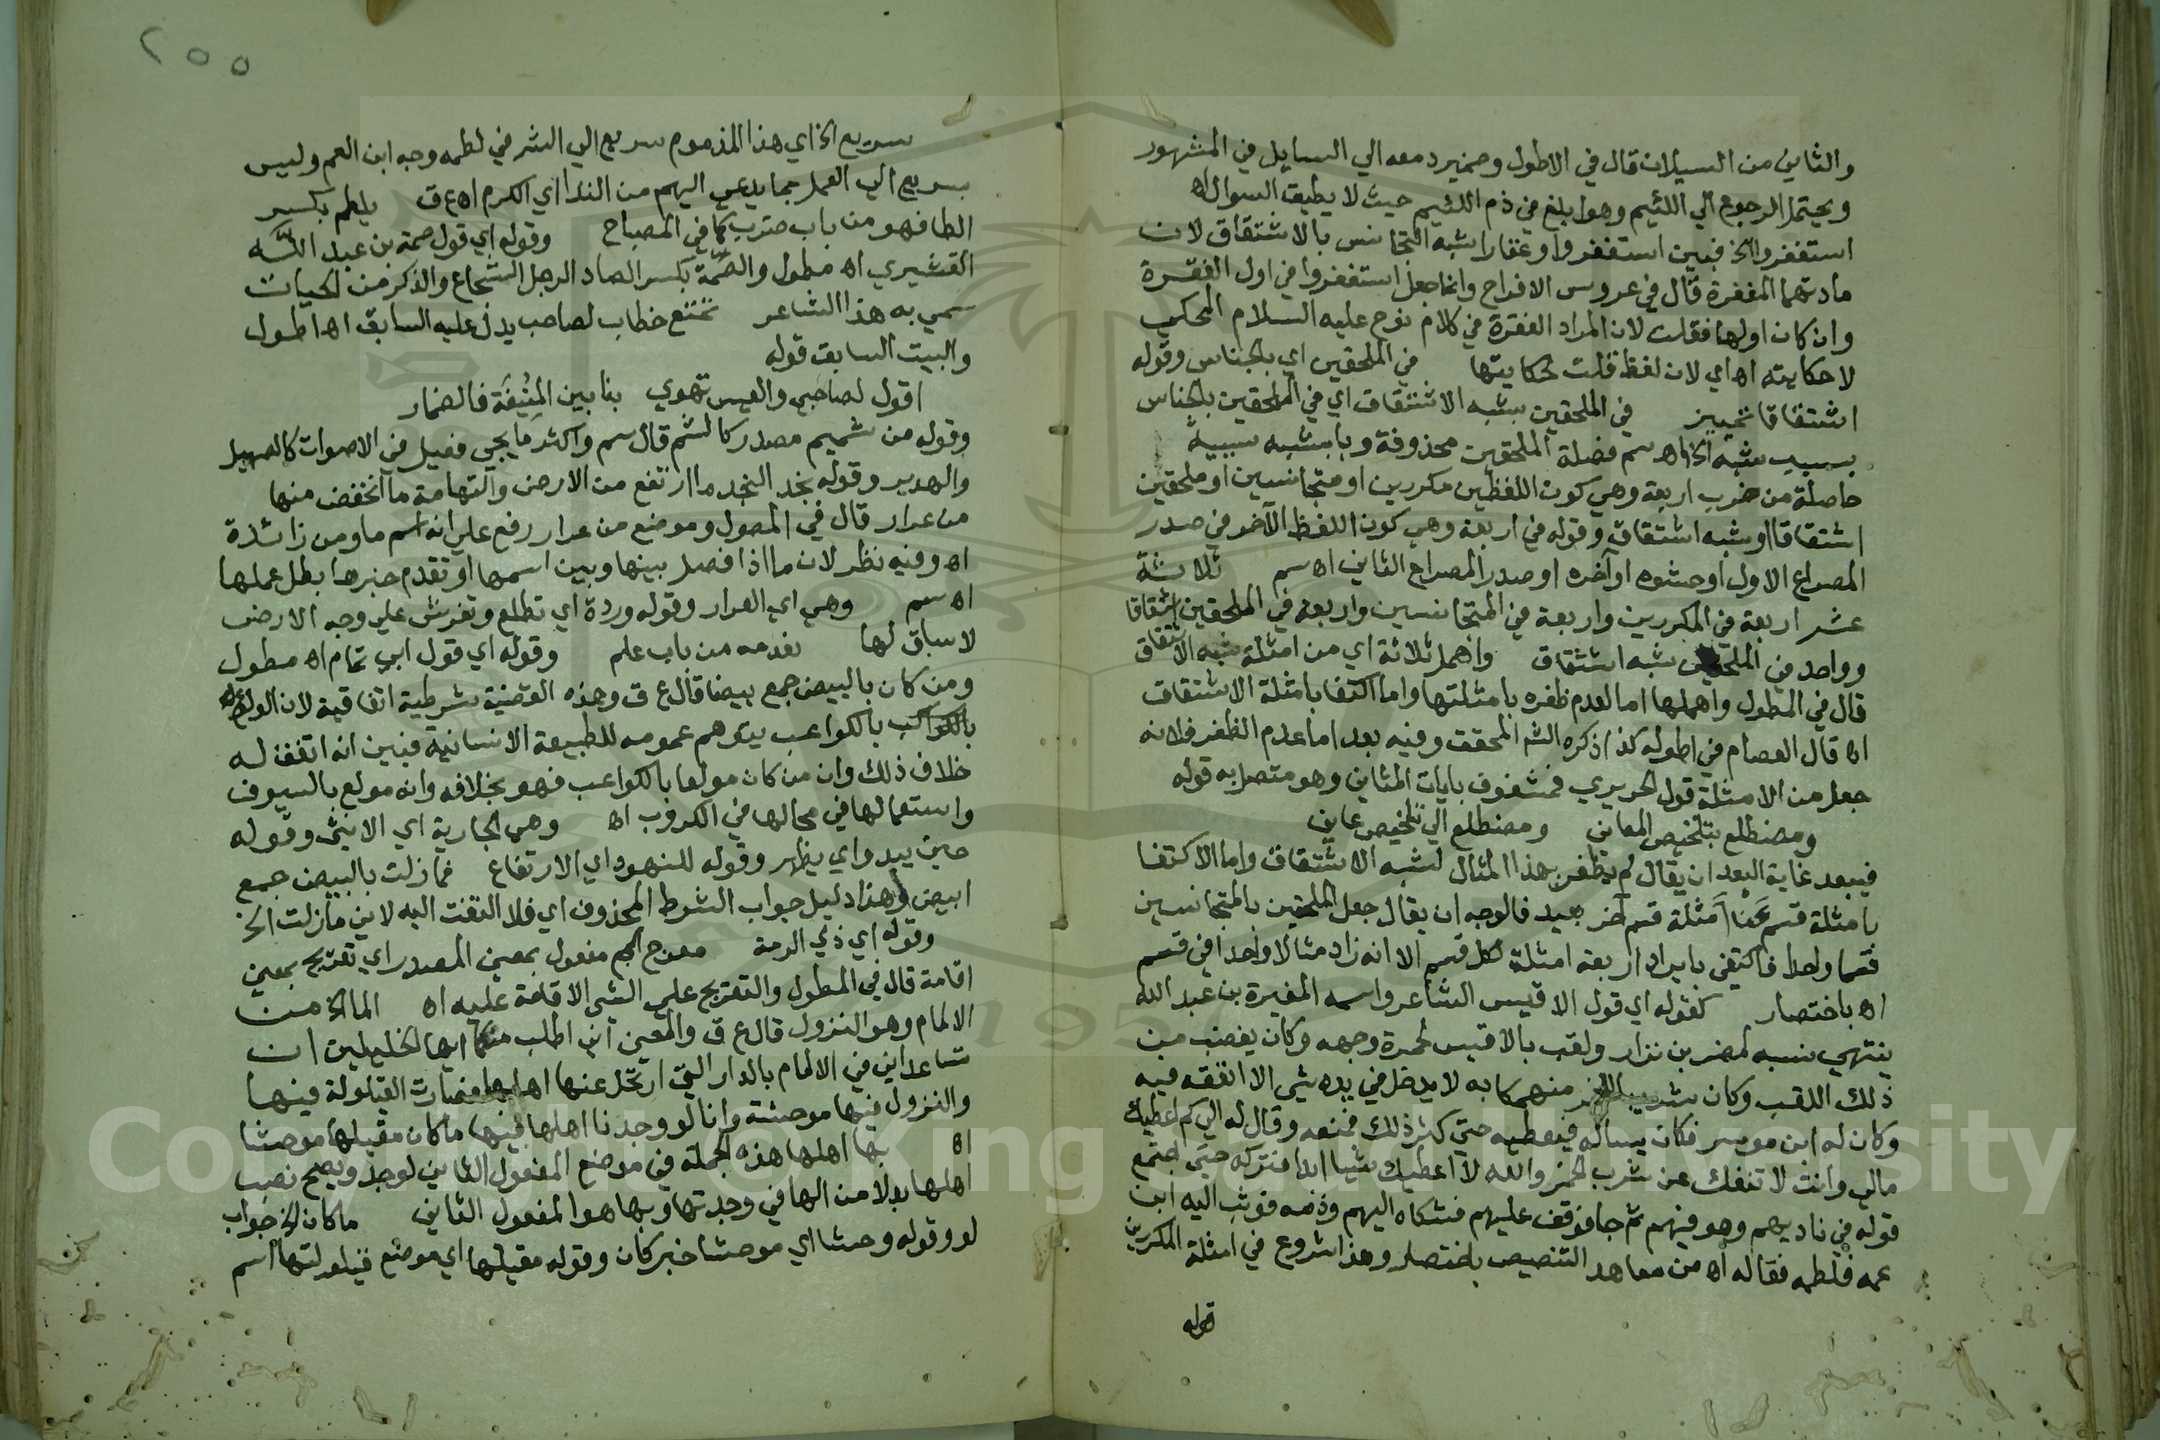 والثاني من السيلان قال في الاطول وضمير دمعه الي السايل في المشهور
ويحتمل الرجوع الي اللئيم وهو ابلغ في ذم اللئيم حيث لا يطيق السوال اه
استغفروا الخ فبين استغفروا وغفارا شبه التجانس بالاشتقاق لان
مادتهما المغفرة قال في عروس الافراح وانما جعل استغفروا في اول الفقرة
وان كان اولها فقلت لان المراد الفقرة في كلام نوح عليه السلام المحكي
لا حكايته اه اي لان لفظ قلت لحكايتها في الملحقين اي بالجناس وقوله
اشتقاقا تمييز في الملحقين بشبه الاشتقاق اي في الملحقين بالجناس
بسبب شبه الخ اه سم فضلة الملحقين محذوفة وبا بشبه سببية
حاصلة من ضرب اربعة وهي كون اللفظين مكررين او متجانسين او ملحقين
اشتقاقا او شبه اشتقاق وقوله في اربعة وهي كون اللفظ الآخر في صدر
المصراع الاول او حشوه او آخره او صدر المصراع الثاني اه سم ثلاثة
عشر اربعة في المكررين واربعة في المتجانسين واربعة في الملحقين اشتقاقا
وواحد في الملحقين شبه اشتقاق واهمل ثلاثة اي من امثلة شبه الاشتقاق
قال في المطول واهملها اما لعدم ظفره بامثلتها واما اكتفا بامثلة الاشتقاق
اه قال العصام في اطوله كذا ذكره الشم المحقق وفيه بعد اما عدم الظفر فلانه
جعل من الامثلة قول الحريري فمشغوف بايات المثاني وهو متصل به قوله
ومضطلع بتلخيص المعاني ومضطلع الي تلخيص عاني
فيبعد غاية البعد ان يقال لم يظفر بهذا المثال لشبه الاشتقاق واما الاكتفا
بامثلة قسم عن امثلة قسم آخر بعيد فالوجه ان يقال جعل الملحقين بالمتجانسين
قسما واحدا فاكتفي بايراد اربعة امثلة لكل قسم الا انه زاد مثالا واحدا في قسم
اه باختصار كقوله اي قول الاقيس الشاعر واسمه المغيرة بن عبد الله
ينتهي نسبه لمضر بن نزار ولقب بالاقيس لحمرة وجهه وكان يغضب من
ذلك اللقب وكان منهمكا به لا يدخل في يده شي الا انفقه فيه
وكان له ابن موسر فكان يساله فيعطيه حتي كثر ذلك فمنعه وقال له الي كم اعطيك
مالي وانت لا تنفك عن شرب الخمر والله لا اعطيك شيا ابدا فتركه حتي اجتمع
قوله في ناديهم وهو فيهم ثم جا فوقف عليهم فشكاه اليهم وذمه فوثب اليه ابن
عمه فلطمه فقاله اه من معاهد التنصيص باختصار وهذا شروع في امثلة المكررين
قوله
٢٥٥
سريع الخ اي هذا المذموم سريع الي الشر في لطمه وجه ابن العم وليس
بسريع الي العمل بما يدعي اليهم من الندا اي الكرم اه ع ق يلطم بكسر
الطا فهو من باب ضرب كما في المصباح وقوله اي قول صمة بن عبد الله
القشيري اه مطول والصمة بكسر الصاد الرجل الشجاع والذكر من الحيات
سمي به هذا الشاعر تمتع خطاب لصاحب يدل عليه السابق اه اطول
والبيت السابق قوله
اقول لصاحبي والعيس تهوي بنا بين المنيفة فالضمار
وقوله من شميم مصدر كالشم قال سم واكثر ما يجي فعيل في الاصوات كالصهيل
والهدير وقوله نجد النجد ما ارتفع من الارض والتهامة ما انخفض منها
من عرار قال في المصول وموضع من عرار رفع علي انه اسم ما ومن زائدة
اه وفيه نظر لان ما اذا فصل بينها وبين اسمها او تقدم خبرها بطل عملها
اه سم وهي اي العرار وقوله وردة اي تطلع وتفرش علي وجه الارض
لا ساق لها نعدمه من باب علم وقوله اي قول ابي تمام اه مطول
ومن كان بالبيض جمع بيضا قال ع ق وهذه القضية شرطية اتفاقية لان
بالكواعب يتوهم عمومه للطبيعة الانسانية فبين انه اتفق له
خلاف ذلك وان من كان مولعا بالكواعب فهو بخلافه وانه مولع بالسيوف
واستعمالها في محالها في الكروب اه وهي الجارية اي الانثي وقوله
حين يبدو اي يظهر وقوله للنهود اي الارتفاع فما زلت بالبيض جمع
ابيض وهذا دليل جواب الشرط المحذوف اي فلا التفت اليه لاني ما زلت الخ
وقوله اي ذي الرمة معرج الخ مفعول بمعني المصدر اي تعريج بمعني
اقامة قال في المطول والتعريج علي الشي الاقامة عليه اه الما الخ من
الالمام وهو النزول قال ع ق والمعني اني اطلب منكما ايها الخليلين ان
تساعداني في الالمام بالدار التي ارتحل عنها اهلها فصارت القيلولة فيها
والنزول فيها موحشة وانا لو وجدنا اهلها فيها ما كان مقيلها موحشا
اه بها اهلها هذه الجملة في موضع المفعول الثاني لوجد ويصح نصب
اهلها بدلا من الها في وجدتها وبها هو المفعول الثاني ما كان الخ جواب
لو وقوله وحشا اي موحشا خبر كان وقوله مقيلها اي موضع قيلولتها اسم
Copyright © King Saud University
1957